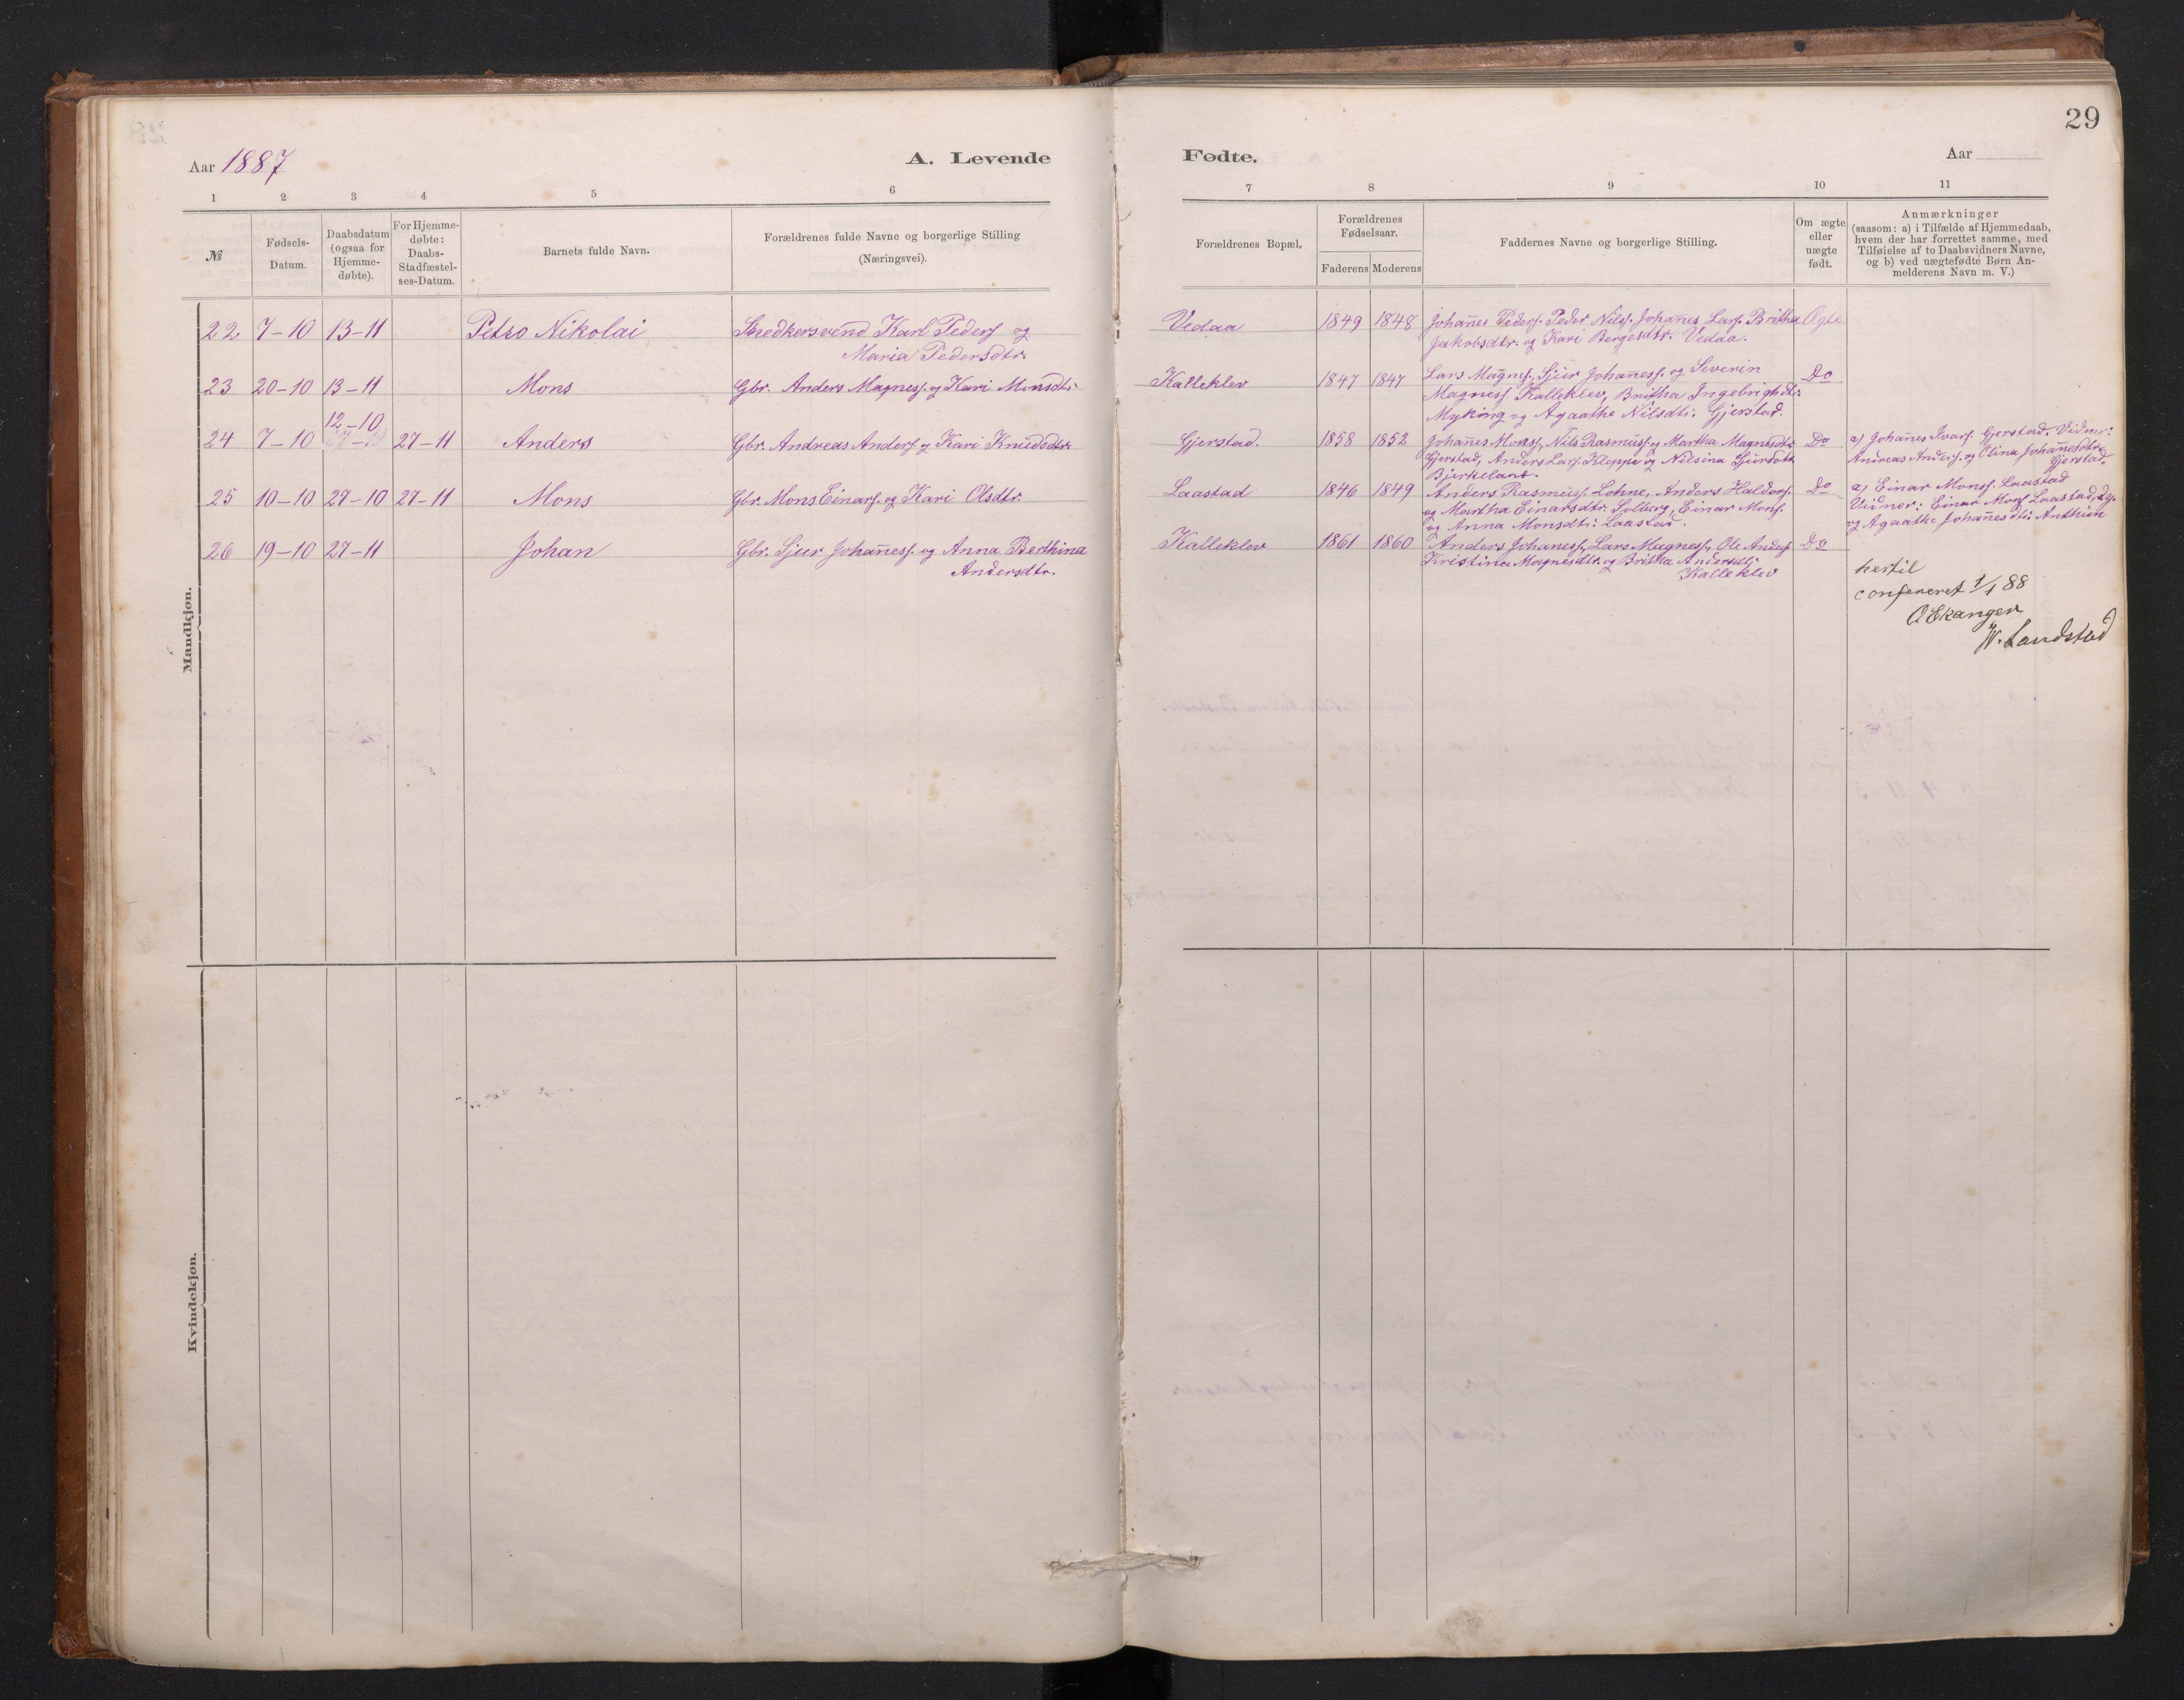 29
Aar 1887
A. Levende
Fødte.
Aar
1 2 3 4 5 6
7 8 9 10 11
№
Fødsels-
Datum.
Daabsdatum
(ogsaa for
Hjemme-
døbte).
For Hjemme-
døbte:
Daabs-
Stadfæstel-
ses-Datum.
Barnets fulde Navn.
Forældrenes fulde Navne og borgerlige Stilling
(Næringsvei).
Forældrenes Bopæl.
Forældrenes
Fødselsaar.
Faderens Moderens
Faddernes Navne og borgerlige Stilling.
Om ægte
eller
uægte
født.
Anmærkninger
(saasom: a) i Tilfælde af Hjemmedaab,
hvem der har forrettet samme, med
Tilføielse af to Daabsvidners Navne,
og b) ved uægtefødte Børn An-
melderens Navn m. V.)
Mandkjøn.
22 7-10 13-11 Petro Nikolai Snedkersvend Karl Peders. og
Maria Pedersdtr.
Vedaa 1849 1848 Johañes Peders. Peder Nils. Johañes Lars. Britha Ægte
Jakobsdtr. og Kari Bergesdtr. Vedaa.
23 20-10 13-11 Mons Gbr. Anders Magness. og Kari Monsdtr.
Kalleklev 1847 1847 Lars Magns., Sjur Johañess. og Severin Do
Magness. Kalleklev, Britha Ingebrigtsdtr.
Myking og Agaathe Nilsdtr. Gjerstad.
12-10
24 7-10 27-11 Anders Gbr. Andreas Anders. og Kari Knudsdtr.
Gjerstad. 1858 1852 Johañes Monss., Nils Rasmuss. og Martha Magnesdtr. Do
Gjerstad, Anders Lars. Kleppe og Nilsina Sjursdtr.
Bjerkeland.
a) Johañes Ivars. Gjerstad. Vidner:
Andreas Anders. og Elina Johañesdtr.
Gjerstad.
25 10-10 27-10 27-11 Mons Gbr. Mons Einars. og Kari Olsdtr.
Laastad 1846 1849 Anders Rasmuss. Lohne, Anders Haldors. Do
og Martha Einarsdtr. Solberg, Einar Mons.
og Anna Monsdtr. Laastad.
a) Einar Monss. Laastad
Vidner: Einar Mons. Laastad,
og Agaathe Johañesdtr. Anthun
26 19-10 27-11 Johan Gbr. Sjur Johañess. og Anna Berthina
Andersdtr.
Kalleklev 1861 1860 Anders Johañess., Lars Magness., Ole Anders. Do
Kristina Magnesdtr. og Britha Andersdtr.
Kalleklev
hertil
confereret 1/1 88
O Ekanger
W. Landstad
Kvindekjøn.